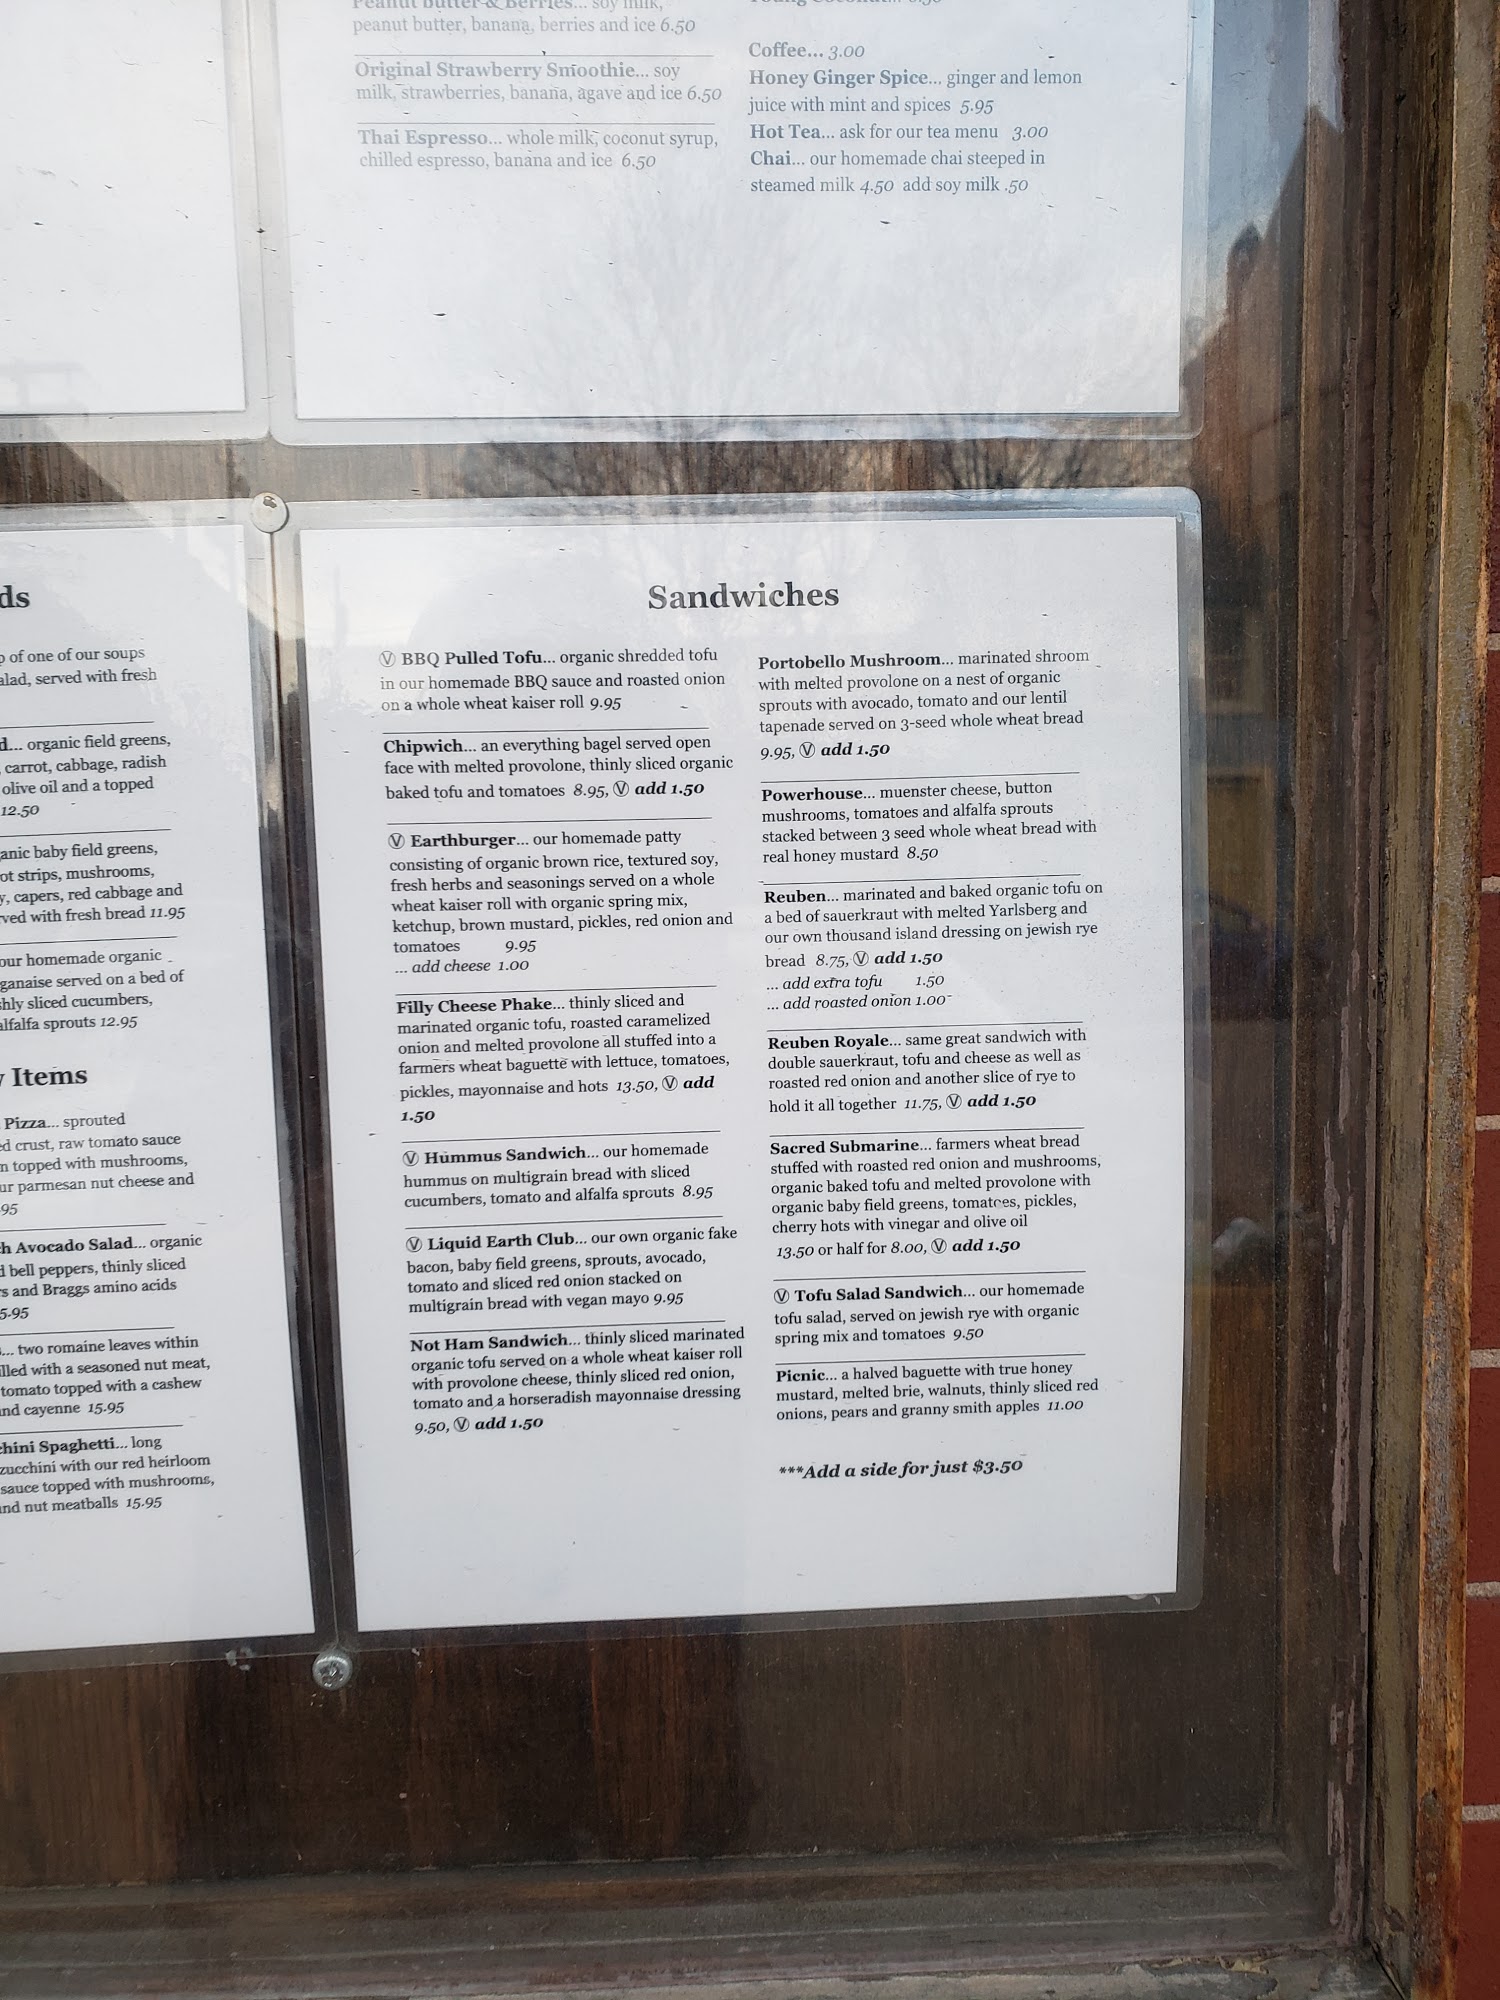 peanut butter, banana, berries and ice 6.50
Original Strawberry Smoothie... soy
milk, strawberries, banana, agave and ice 6.50
Thai Espresso... whole milk, coconut syrup,
chilled espresso, banana and ice 6.50
Coffee... 3.00
Honey Ginger Spice... ginger and lemon
juice with mint and spices 5.95
Hot Tea... ask for our tea menu 3.00
Chai... our homemade chai steeped in
steamed milk 4.50 add soy milk .50
ds
of one of our soups
served with fresh
... organic field greens,
carrot, cabbage, radish
olive oil and a topped
12.50
baby field greens,
strips, mushrooms,
capers, red cabbage and
with fresh bread 11.95
our homemade organic
served on a bed of
sliced cucumbers,
alfalfa sprouts 12.95
Items
Pizza... sprouted
crust, raw tomato sauce
topped with mushrooms,
parmesan nut cheese and
95
Avocado Salad... organic
bell peppers, thinly sliced
and Braggs amino acids
5.95
... two romaine leaves within
with a seasoned nut meat,
tomato topped with a cashew
and cayenne 15.95
Spaghetti... long
zucchini with our red heirloom
sauce topped with mushrooms,
and nut meatballs 15.95
Sandwiches
Ⓥ BBQ Pulled Tofu... organic shredded tofu
in our homemade BBQ sauce and roasted onion
on a whole wheat kaiser roll 9.95
Chipwich... an everything bagel served open
face with melted provolone, thinly sliced organic
baked tofu and tomatoes 8.95, Ⓥ add 1.50
Ⓥ Earthburger... our homemade patty
consisting of organic brown rice, textured soy,
fresh herbs and seasonings served on a whole
wheat kaiser roll with organic spring mix,
ketchup, brown mustard, pickles, red onion and
tomatoes 9.95
... add cheese 1.00
Filly Cheese Phake... thinly sliced and
marinated organic tofu, roasted caramelized
onion and melted provolone all stuffed into a
farmers wheat baguette with lettuce, tomatoes,
pickles, mayonnaise and hots 13.50, Ⓥ add
1.50
Ⓥ Hummus Sandwich... our homemade
hummus on multigrain bread with sliced
cucumbers, tomato and alfalfa sprouts 8.95
Ⓥ Liquid Earth Club... our own organic fake
bacon, baby field greens, sprouts, avocado,
tomato and sliced red onion stacked on
multigrain bread with vegan mayo 9.95
Not Ham Sandwich... thinly sliced marinated
organic tofu served on a whole wheat kaiser roll
with provolone cheese, thinly sliced red onion,
tomato and a horseradish mayonnaise dressing
9.50, Ⓥ add 1.50
Portobello Mushroom... marinated shroom
with melted provolone on a nest of organic
sprouts with avocado, tomato and our lentil
tapenade served on 3-seed whole wheat bread
9.95, Ⓥ add 1.50
Powerhouse... muenster cheese, button
mushrooms, tomatoes and alfalfa sprouts
stacked between 3 seed whole wheat bread with
real honey mustard 8.50
Reuben... marinated and baked organic tofu on
a bed of sauerkraut with melted Yarlsberg and
our own thousand island dressing on jewish rye
bread 8.75, Ⓥ add 1.50
... add extra tofu 1.50
... add roasted onion 1.00
Reuben Royale... same great sandwich with
double sauerkraut, tofu and cheese as well as
roasted red onion and another slice of rye to
hold it all together 11.75, Ⓥ add 1.50
Sacred Submarine... farmers wheat bread
stuffed with roasted red onion and mushrooms,
organic baked tofu and melted provolone with
organic baby field greens, tomatoes, pickles,
cherry hots with vinegar and olive oil
13.50 or half for 8.00, Ⓥ add 1.50
Ⓥ Tofu Salad Sandwich... our homemade
tofu salad, served on jewish rye with organic
spring mix and tomatoes 9.50
Picnic... a halved baguette with true honey
mustard, melted brie, walnuts, thinly sliced red
onions, pears and granny smith apples 11.00
***Add a side for just $3.50